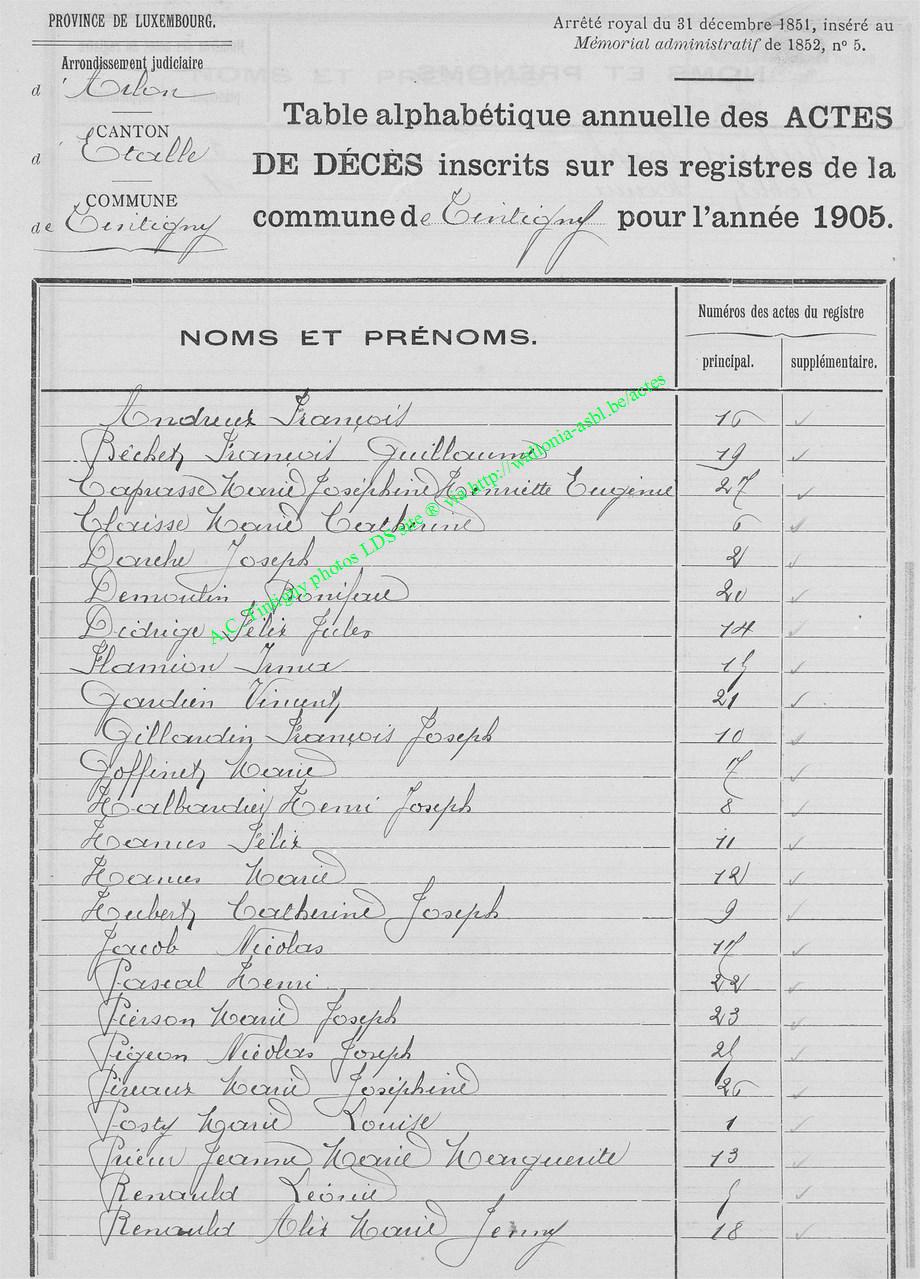 PROVINCE DE LUXEMBOURG.
Arrondissement judiciaire
d'Arlon
CANTON
d'Etalle
COMMUNE
de Tintigny
Arrêté royal du 31 décembre 1851, inséré au
Mémorial administratif de 1852, nº 5.
Table alphabétique annuelle des ACTES
DE DÉCÈS inscrits sur les registres de la
commune de Tintigny pour l'année 1905.
NOMS ET PRÉNOMS.
Numéros des actes du registre
principal. supplémentaire.
Andreux François 16 ✓
Béchet François Guillaume 19 ✓
Caprasse Marie Joséphine Henriette Eugénie 27 ✓
Claisse Marie Catherine 6 ✓
Darche Joseph 2 ✓
Demoulin Boniface 20 ✓
Félix Jules 14 ✓
Flamion Irma 15 ✓
Gardien Vincent 21 ✓
Gillardin François Joseph 10 ✓
Goffinet Marie 7 ✓
Halbardier Henri Joseph 8 ✓
Hamus Félix 11 ✓
Hamus Marie 12 ✓
Hubert Catherine Joseph 9 ✓
Jacob Nicolas 17 ✓
Pascal Henri 22 ✓
Pierson Marie Joseph 23 ✓
Pigeon Nicolas Joseph 25 ✓
Pireaux Marie Joséphine 26 ✓
Posty Marie Louise 1 ✓
Prieur Jeanne Marie Marguerite 13 ✓
Renauld Léonie 5 ✓
Renauld Alix Marie Jenny 18 ✓
A.C. Tintigny photos LDS site ® via http://wallonia-asbl.be/actes